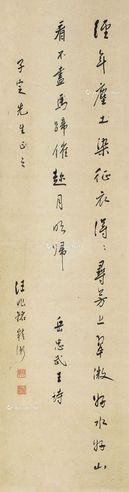 經年塵土染征衣得得尋芳上翠微好水好山
看不盡馬蹄催趁月明歸
岳忠武王詩
子定先生正之
汪兆銘精衛